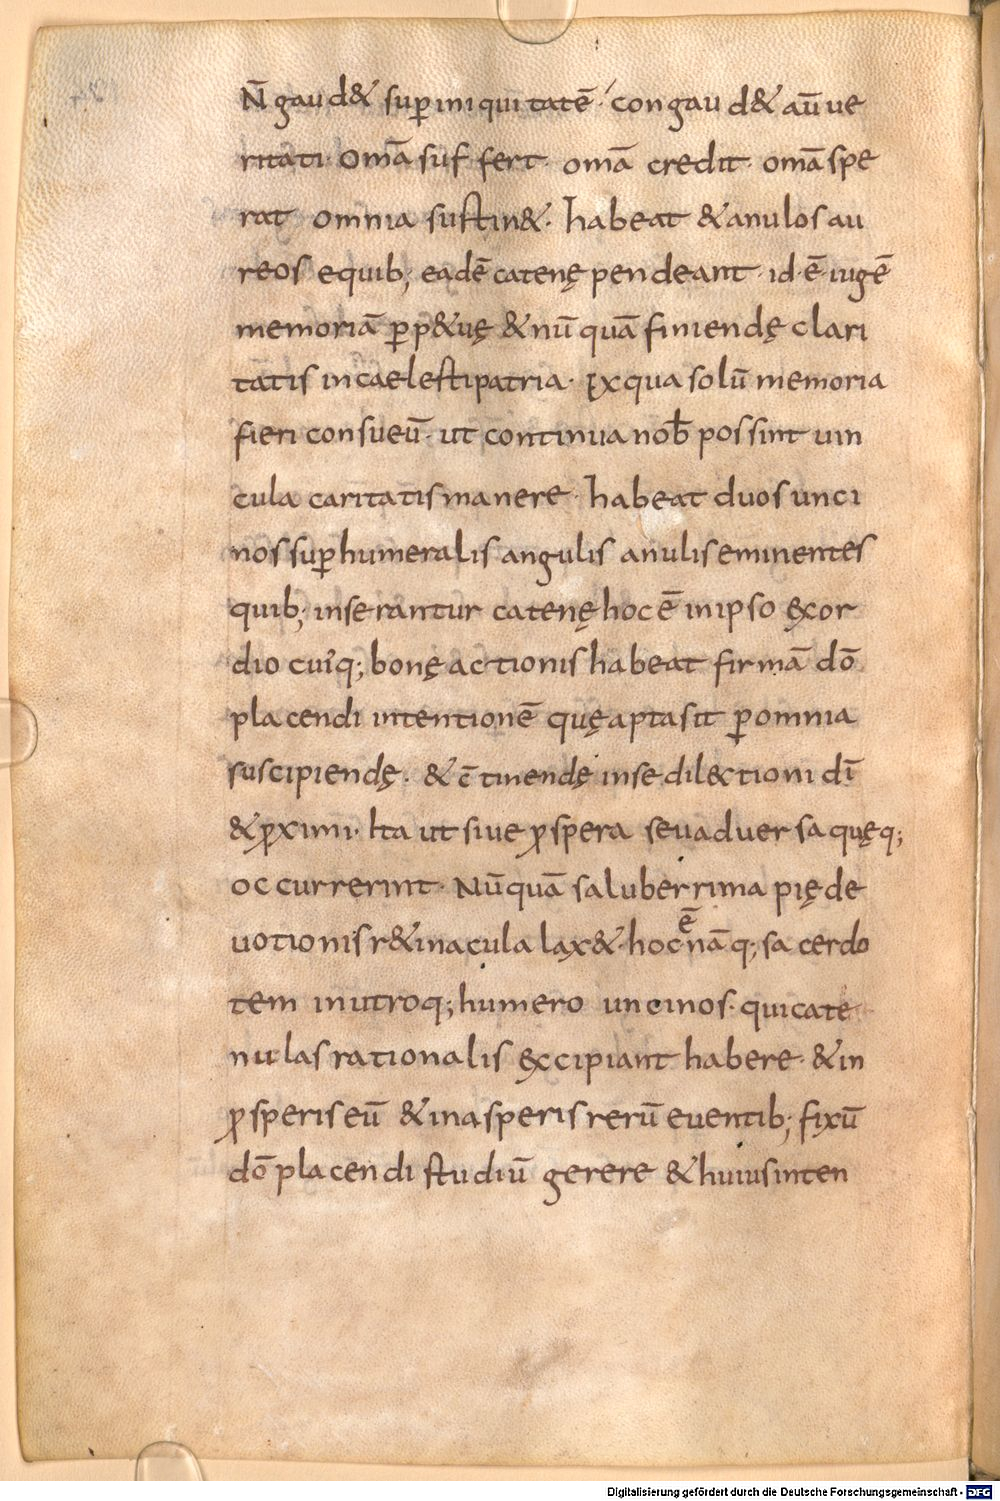 N̄ gaud& sup̲ iniquitatē· congaud& aū ue
ritati· Om̄a suffert· om̄a credit· om̄a spe
rat omnia sustin&· habeat & anulos au
reos e quib; eadē catenę pendeant· id·ē· iugē
memoriā p̲p&uę & nūquā finiendę clari
tatis in caelesti patria· Ex qua solū memoria
fieri consueū· ut continua nob̄ possint uin
cula caritatis manere· habeat duos unci
nos sup̲humeralis angulis anulis eminentes
quib; inserantur catenę hoc ē in ipso ęxor
dio cuiq; bonę actionis habeat firmā dō
placendi intentionē quę apta sit p̲ omnia
suscipiendę· & c̄tinendę in se dilectioni dī
& ꝓximi· Ita ut siue ꝓspera seu aduersa quęq;
occurrerint· Nūquā saluberrima pię de
uotionis r&inacula lax&· hoc ē nāq; sacerdo
tem in utroq; humero uncinos· qui cate
nulas rationalis excipiant habere· & in
ꝓsperis eū & in asperis rerū euentib; fixū
dō placendi studiū gerere & huius inten
Digitalisierung gefördert durch die Deutsche Forschungsgemeinschaft - DFG